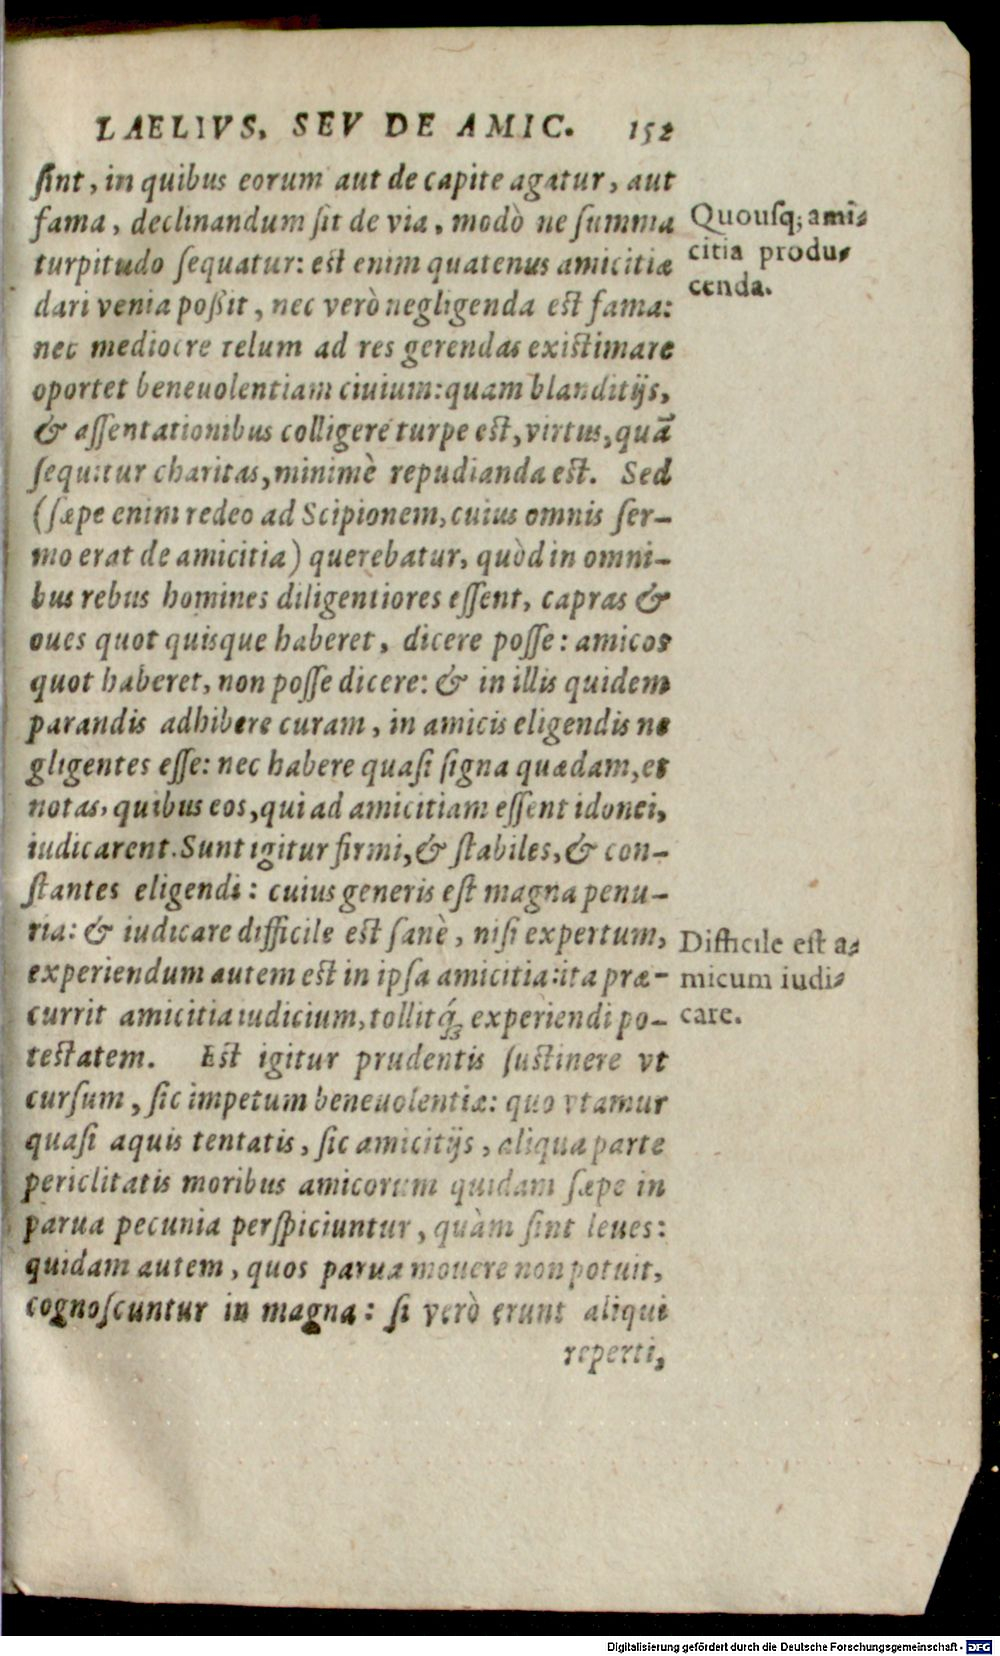 LAELIVS, SEV DE AMIC. 152
sint, in quibus eorum aut de capite agatur, aut
fama, declinandum sit de via, modò ne summa
turpitudo sequatur: est enim quatenus amicitiæ
dari venia poßit, nec verò negligenda est fama:
nec mediocre telum ad res gerendas existimare
oportet beneuolentiam ciuium: quam blanditijs,
& assentationibus colligere turpe est, virtus, quã
sequitur charitas, minimè repudianda est. Sed
(sæpe enim redeo ad Scipionem, cuius omnis ser-
mo erat de amicitia) querebatur, quòd in omni-
bus rebus homines diligentiores essent, capras &
oues quot quisque haberet, dicere posse: amicos
quot haberet, non posse dicere: & in illis quidem
parandis adhibere curam, in amicis eligendis ne
gligentes esse: nec habere quasi signa quædam, et
notas, quibus eos, qui ad amicitiam essent idonei,
iudicarent. Sunt igitur firmi, & stabiles, & con-
stantes eligendi: cuius generis est magna penu-
ria: & iudicare difficile est sanè, nisi expertum,
experiendum autem est in ipsa amicitia: ita præ-
currit amicitia iudicium, tollitq́; experiendi po-
testatem. Est igitur prudentis sustinere vt
cursum, sic impetum beneuolentiæ: quo vtamur
quasi aquis tentatis, sic amicitijs, aliqua parte
periclitatis moribus amicorum quidam sæpe in
parua pecunia perspiciuntur, quàm sint leues:
quidam autem, quos parua mouere non potuit,
cognoscuntur in magna: si verò erunt aliqui
reperti,
Quousq; ami-
citia produ-
cenda.
Difficile est a-
micum iudi-
care.
Digitalisierung gefördert durch die Deutsche Forschungsgemeinschaft - DFG